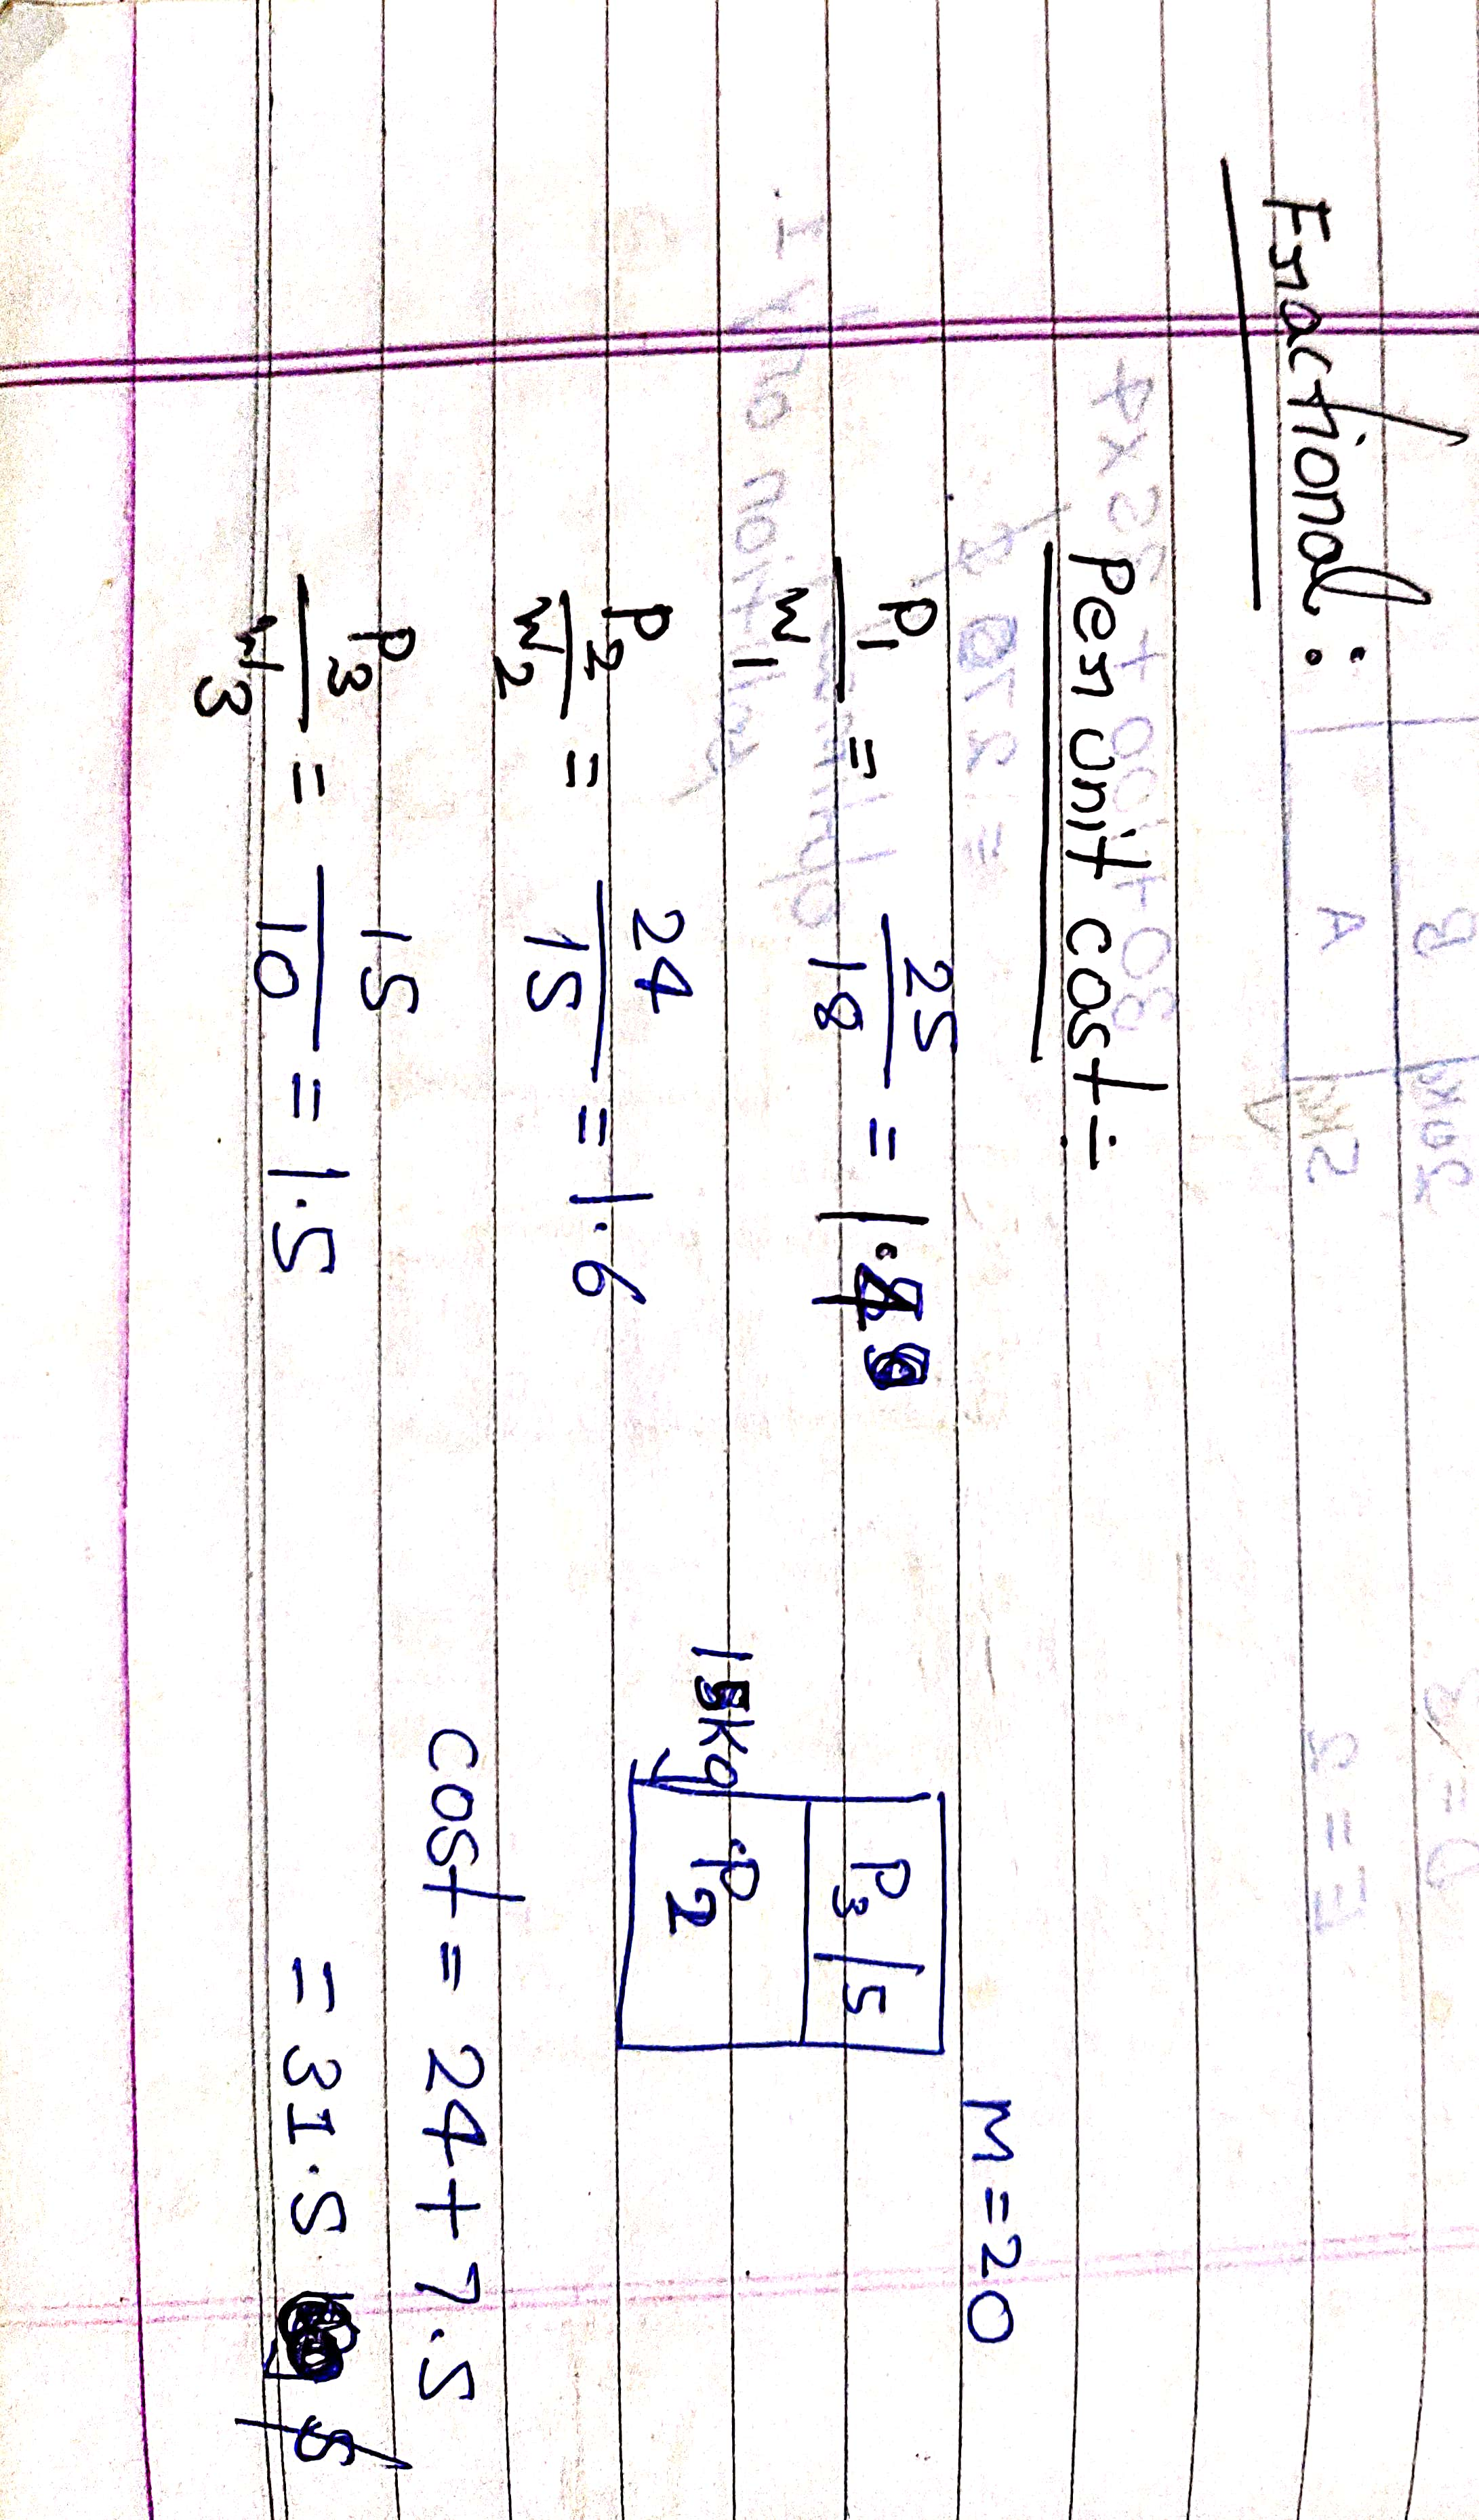 Fractional :
Per unit cost :-
P1/W1 = 25/18 = 1.4
P2/W2 = 24/15 = 1.6
P3/W3 = 15/10 = 1.5
M = 20
P3 / 5
15kg P2
cost = 24 + 7.5
= 31.5